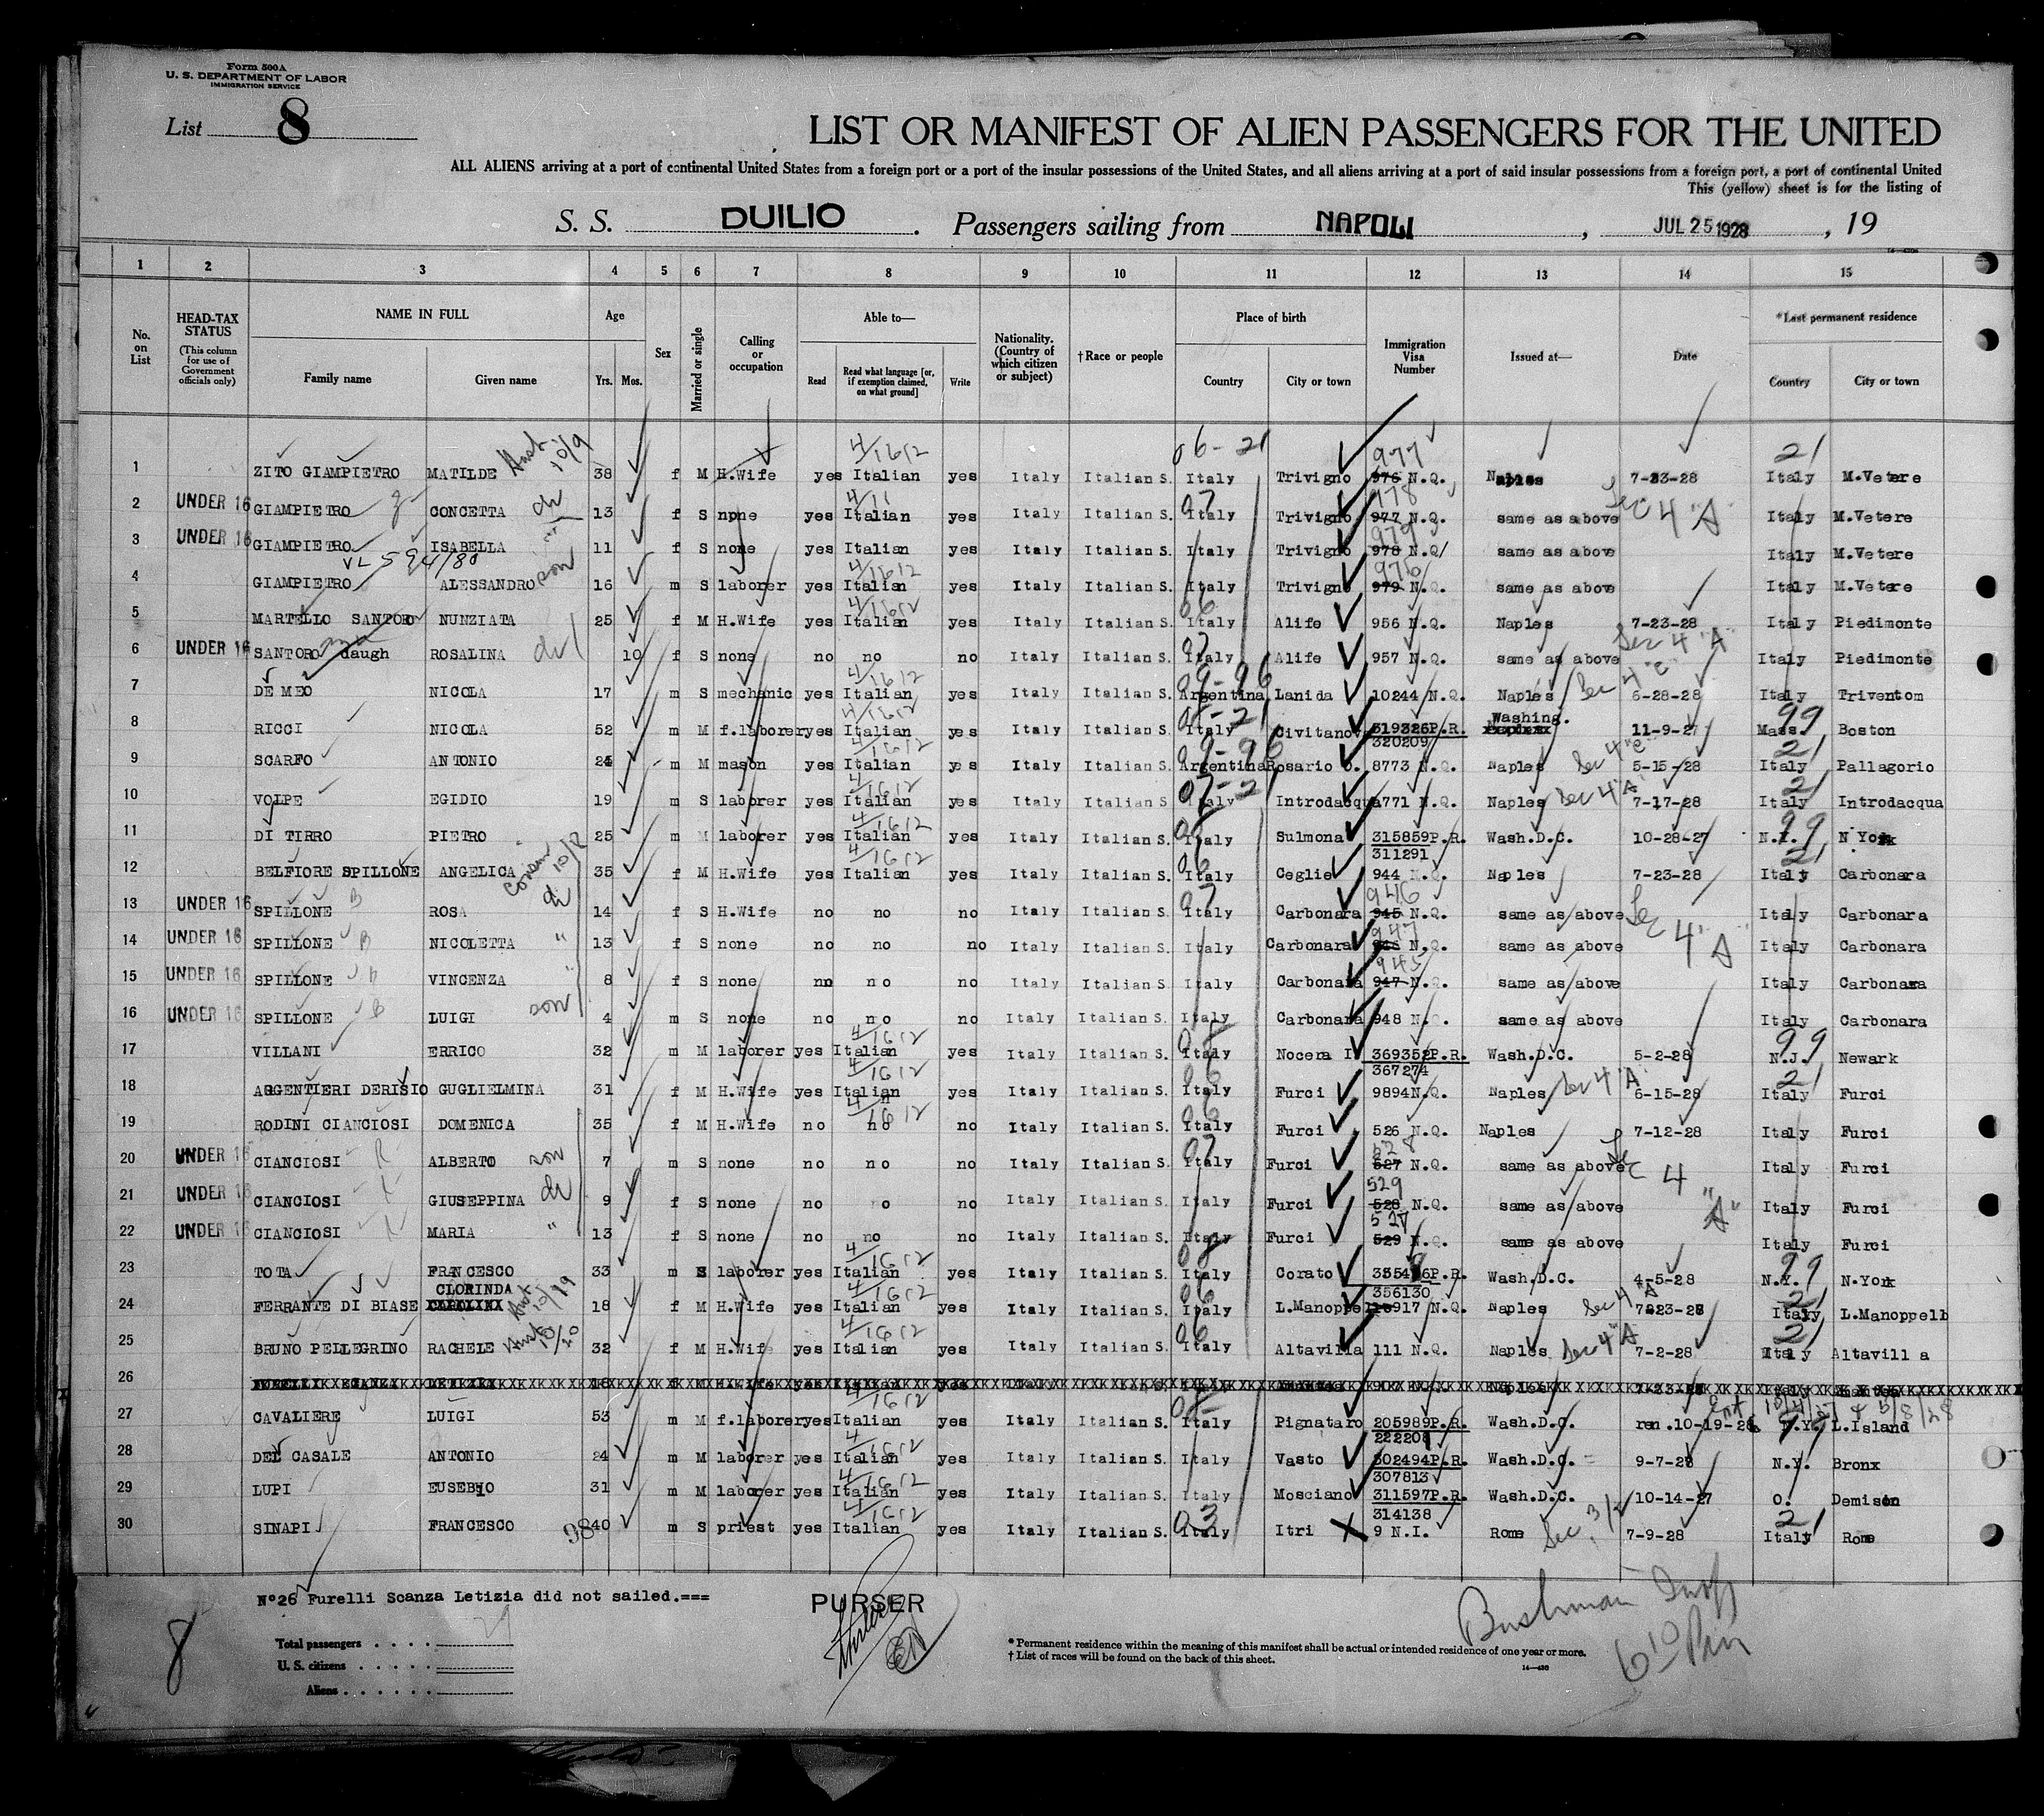 Form 500A
U. S. DEPARTMENT OF LABOR
IMMIGRATION SERVICE
List 8
LIST OR MANIFEST OF ALIEN PASSENGERS FOR THE UNITED
ALL ALIENS arriving at a port of continental United States from a foreign port or a port of the insular possessions of the United States, and all aliens arriving at a port of said insular possessions from a foreign port, a port of continental United
This (yellow) sheet is for the listing of
S. S. DUILIO. Passengers sailing from NAPOLI, JUL 25 1928, 19
1 2 3 4 5 6 7 8 9 10 11 12 13 14 15
No. on List HEAD-TAX STATUS (This column for use of Government officials only) NAME IN FULL Family name Given name Age Yrs. Mos. Sex Married or single Calling or occupation Able to— Read Read what language [or, if exemption claimed, on what ground] Write Nationality. (Country of which citizen or subject) †Race or people Place of birth Country City or town Immigration Visa Number Issued at— Date *Last permanent residence Country City or town
1 ZITO GIAMPIETRO MATILDE 38 f M H.Wife yes Italian yes Italy Italian S. Italy Trivigno 976 977 N.Q. Naples 7-23-28 Italy M.Vetere
2 UNDER 16 GIAMPIETRO CONCETTA 13 f S none yes Italian yes Italy Italian S. Italy Trivigno 977 978 N.Q. same as above Sec 4 "A" Italy M.Vetere
3 UNDER 16 GIAMPIETRO ISABELLA 11 f S none yes Italian yes Italy Italian S. Italy Trivigno 978 979 N.Q/ same as above Italy M.Vetere
4 GIAMPIETRO ALESSANDRO son 16 m S laborer yes Italian yes Italy Italian S. Italy Trivigno 979 976 N.Q. same as above Italy M.Vetere
5 MARTELLO SANTORO NUNZIATA 25 f M H.Wife yes Italian yes Italy Italian S. Italy Alife 956 N.Q. Naples 7-23-28 Italy Piedimonte
6 UNDER 16 SANTORO daugh ROSALINA 10 f S none no no no Italy Italian S. Italy Alife 957 N.Q. same as above Sec 4 "A" Italy Piedimonte
7 DE MEO NICOLA 17 m S mechanic yes Italian yes Italy Italian S. Argentina Lanida 10244 N.Q. Naples Sec 4 "C" 6-28-28 Italy Triventom
8 RICCI NICOLA 52 m M f.laborer yes Italian yes Italy Italian S. Italy Civitano 319326P.R. 320209 Washing. 11-9-27 Mass. Boston
9 SCARFO ANTONIO 24 m M mason yes Italian yes Italy Italian S. Argentina Rosario 8773 N.Q. Naples Sec 4 "C" 5-15-28 Italy Pallagorio
10 VOLPE EGIDIO 19 m S laborer yes Italian yes Italy Italian S. Italy Introdacqua 771 N.Q. Naples Sec 4 "A" 7-17-28 Italy Introdacqua
11 DI TIRRO PIETRO 25 m M laborer yes Italian yes Italy Italian S. Italy Sulmona 315859P.R. 311291 Wash.D.C. 10-28-27 N.Y. N York
12 BELFIORE SPILLONE ANGELICA 35 f M H.Wife yes Italian yes Italy Italian S. Italy Ceglie 944 N.Q. Naples 7-23-28 Italy Carbonara
13 UNDER 16 SPILLONE ROSA 14 f S H.Wife no no no Italy Italian S. Italy Carbonara 945 946 N.Q. same as above Sec 4 "A" Italy Carbonara
14 UNDER 16 SPILLONE NICOLETTA " 13 f S none no no no Italy Italian S. Italy Carbonara 946 947 N.Q. same as above Italy Carbonara
15 UNDER 16 SPILLONE VINCENZA " 8 f S none no no no Italy Italian S. Italy Carbonara 947 945 N.Q. same as above Italy Carbonara
16 UNDER 16 SPILLONE LUIGI son 4 m S none no no no Italy Italian S. Italy Carbonara 948 N.Q. same as above Italy Carbonara
17 VILLANI ERRICO 32 m M laborer yes Italian yes Italy Italian S. Italy Nocera I 369352P.R. 367274 Wash.D.C. 5-2-28 N.J. Newark
18 ARGENTIERI DERISIO GUGLIELMINA 31 f M H.Wife yes Italian yes Italy Italian S. Italy Furci 9894N.Q. Naples Sec 4 "A" 6-15-28 Italy Furci
19 RODINI CIANCIOSI DOMENICA 35 f M H.Wife no no no Italy Italian S. Italy Furci 526 N.Q. Naples 7-12-28 Italy Furci
20 UNDER 16 CIANCIOSI ALBERTO son 7 m S none no no no Italy Italian S. Italy Furci 527 528 N.Q. same as above Sec 4 "A" Italy Furci
21 UNDER 16 CIANCIOSI GIUSEPPINA 9 f S none no no no Italy Italian S. Italy Furci 528 529 N.Q. same as above Italy Furci
22 UNDER 16 CIANCIOSI MARIA " 13 f S none no no no Italy Italian S. Italy Furci 529 527 N.Q. same as above Italy Furci
23 TOTA FRANCESCO 33 m S laborer yes Italian yes Italy Italian S. Italy Corato P.R. 356130 Wash.D.C. 4-5-28 N.Y. N.York
24 FERRANTE DI BIASE CLORINDA 18 f M H.Wife yes Italian yes Italy Italian S. Italy L.Manoppel 10917 N.Q. Naples Sec 4 "A" 7-23-28 Italy L.Manoppelb
25 BRUNO PELLEGRINO RACHELE 32 f M H.Wife yes Italian yes Italy Italian S. Italy Altavilla 111 N.Q. Naples Sec 4 "A" 7-2-28 Italy Altavilla
26
27 CAVALIERE LUIGI 53 m M f.laborer yes Italian yes Italy Italian S. Italy Pignataro 205989P.R. 222208 Wash.D.C. ren.10-19-28 N.Y. L.Island
28 DEL CASALE ANTONIO 24 m M laborer yes Italian yes Italy Italian S. Italy Vasto 302494P.R. 307813 Wash.D.C. 9-7-28 N.Y. Bronx
29 LUPI EUSEBIO 31 m M laborer yes Italian yes Italy Italian S. Italy Mosciano 311597P.R. 314138 Wash.D.C. 10-14-27 O. Demison
30 SINAPI FRANCESCO 98 40 m S priest yes Italian yes Italy Italian S. Italy Itri 9 N.I. Rome Sec. 3/2 7-9-28 Italy Rome
N°26 Furelli Scanza Letizia did not sailed.===
PURSER
8
Total passengers . . . . 29
U. S. citizens . . . . .
Aliens . . . . . .
* Permanent residence within the meaning of this manifest shall be actual or intended residence of one year or more.
† List of races will be found on the back of this sheet.
Bushman Insp